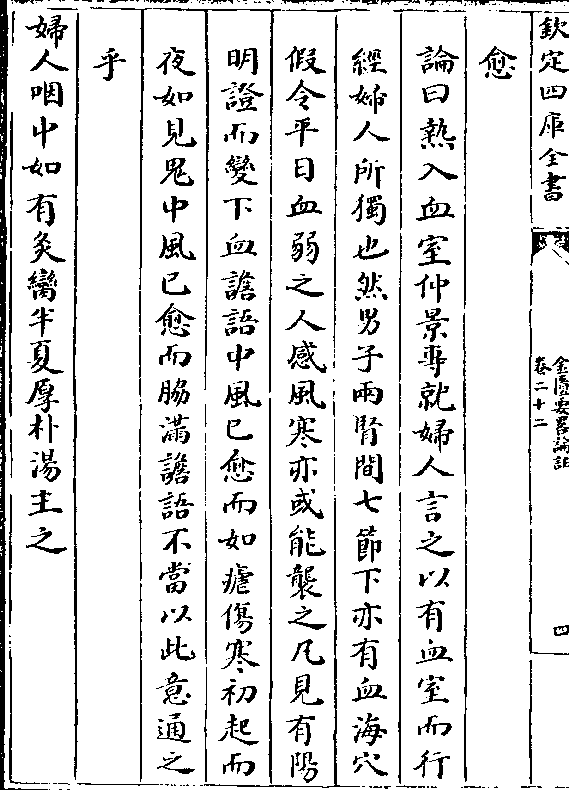 欽定四庫全書
金匱要畧論註
卷二十二
四
愈
論曰熱入血室仲景專就婦人言之以有血室而行
經婦人所獨也然男子兩腎間七節下亦有血海穴
假令平日血弱之人感風寒亦或能襲之凡見有陽
明證而變下血譫語中風已愈而如瘧傷寒初起而
夜如見鬼中風已愈而脇滿譫語不當以此意通之
乎
婦人咽中如有炙臠半夏厚朴湯主之